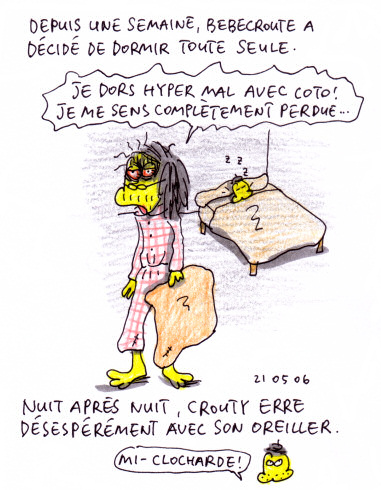 DEPUIS UNE SEMAINE, BEBECROUTE A
DÉCIDÉ DE DORMIR TOUTE SEULE.
JE DORS HYPER MAL AVEC COTO!
JE ME SENS COMPLÈTEMENT PERDUE...
z z z
21 05 06
NUIT APRÈS NUIT, CROUTY ERRE
DÉSESPÉRÉMENT AVEC SON OREILLER.
MI-CLOCHARDE!